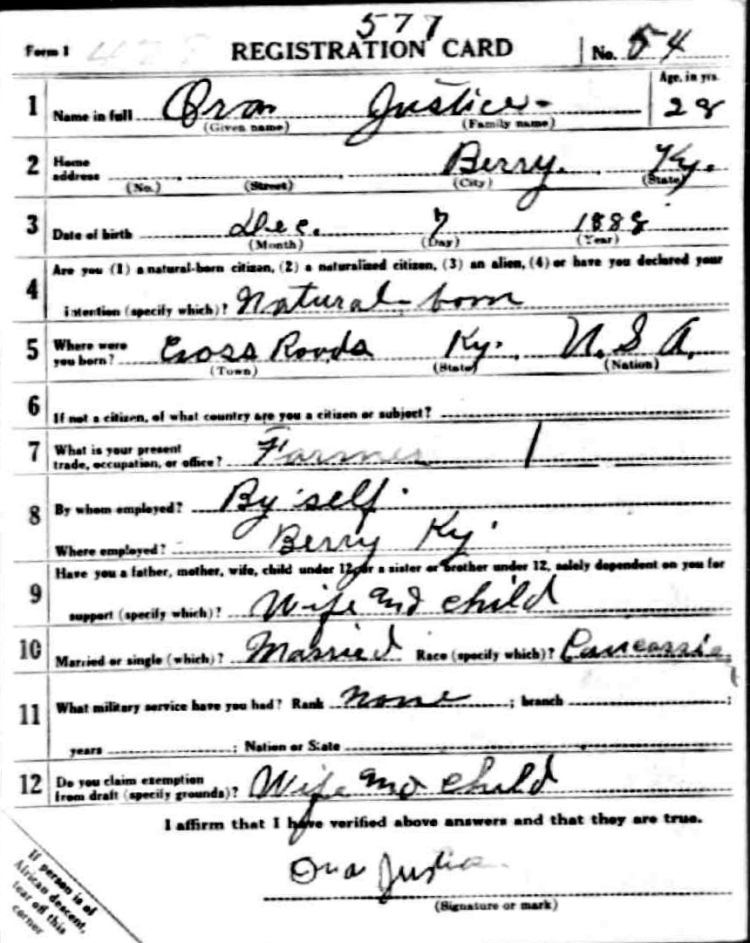 577
Form 1 REGISTRATION CARD No. 54
Age, in yrs.
1 Name in full Oran Justice 28
(Given name) (Family name)
2 Home address Berry, Ky.
(No.) (Street) (City) (State)
3 Date of birth Dec. 7 1888
(Month) (Day) (Year)
4 Are you (1) a natural-born citizen, (2) a naturalized citizen, (3) an alien, (4) or have you declared your
intention (specify which)? Natural-born
5 Where were you born? Cross Roads Ky. U.S.A.
(Town) (State) (Nation)
6 If not a citizen, of what country are you a citizen or subject?
7 What is your present trade, occupation, or office? Farmer
8 By whom employed? By self.
Where employed? Berry Ky
9 Have you a father, mother, wife, child under 12, or a sister or brother under 12, solely dependent on you for
support (specify which)? Wife and child
10 Married or single (which)? Married Race (specify which)? Caucassia
11 What military service have you had? Rank none ; branch ;
years ; Nation or State
12 Do you claim exemption from draft (specify grounds)? Wife and child
I affirm that I have verified above answers and that they are true.
Ora Justice
(Signature or mark)
If person is of
African descent,
tear off this
corner